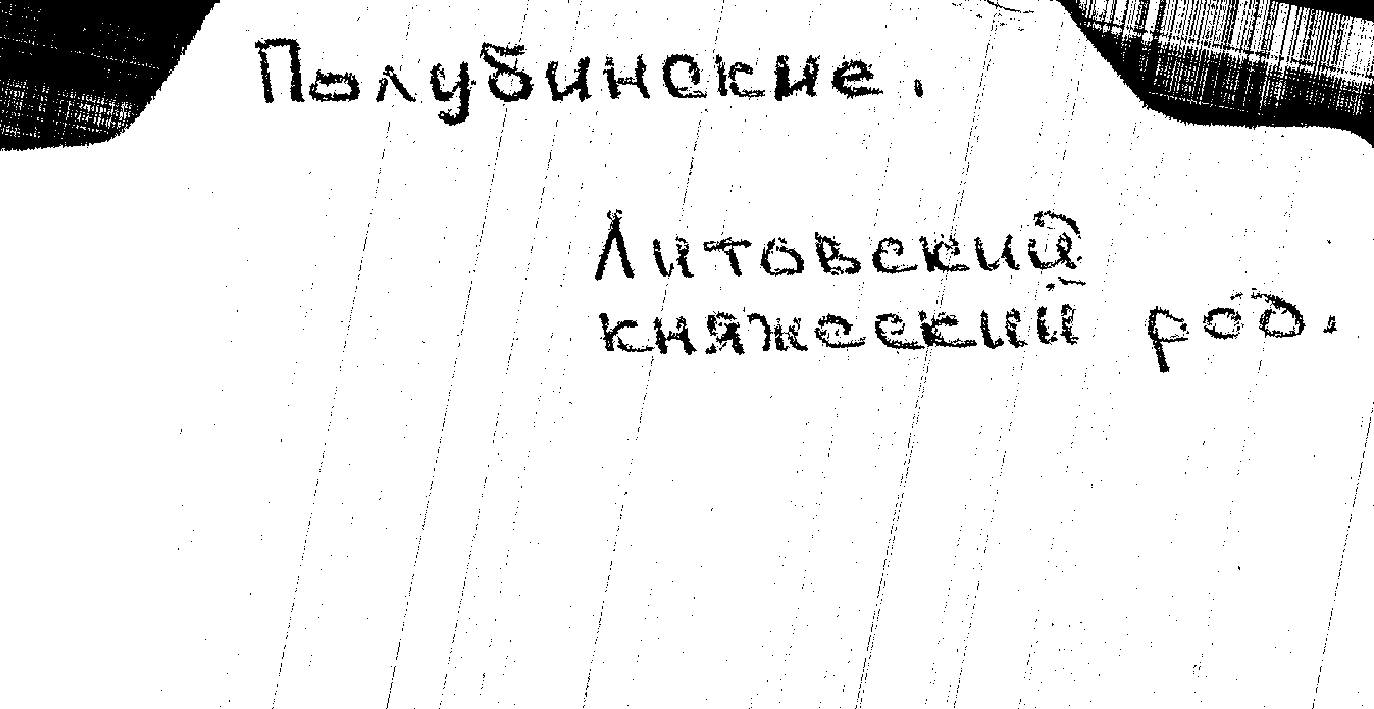 Полубинские.
Литовский
княжеский род.